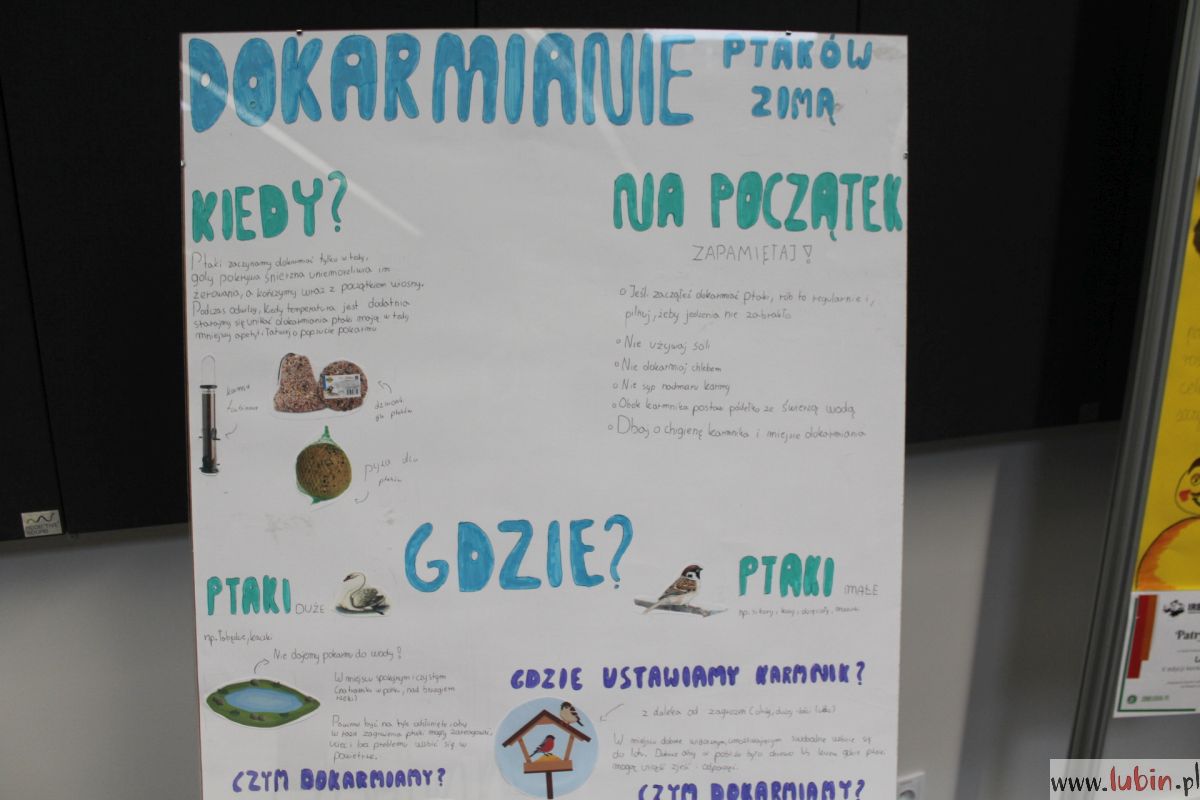 DOKARMIANIE PTAKÓW
ZIMĄ
KIEDY?
Ptaki zaczynamy dokarmiać tylko wtedy,
gdy pokrywa śnieżna uniemożliwia im
żerowanie, a kończymy wraz z początkiem wiosny.
Podczas odwilży, kiedy temperatura jest dodatnia
starajmy się unikać dokarmiania ptaki mają wtedy
mniejszy apetyt i łatwiej o popsucie pokarmu
karmnik
tubowy
dzwonek
dla ptaków
pyza dla
ptaków
NA POCZĄTEK
ZAPAMIĘTAJ!
Jeśli zacząłeś dokarmiać ptaki, rób to regularnie i,
pilnuj, żeby jedzenia nie zabrakło
Nie używaj soli
Nie dokarmiaj chlebem
Nie syp nadmaru karmy
Obok karmnika postaw pódełko ze świeżą wodą
Dbaj o chigienę karmnika i miejsce dokarmiania
GDZIE?
PTAKI DUŻE
np. łabędzie, kaczki
Nie dajemy pokarmu do wody!
W miejscu spokojnym i czystym
(na trawniku w parku, nad brzegiem
rzeki)
Powinno być na tyle odsłonięte, aby
w razie zagrożenia ptaki mogły zareagować
uciec i bez problemu wzbić się w
powietrze.
CZYM DOKARMIAMY?
PTAKI MAŁE
np. sikory, kosy, dzięcioły, mazurki
GDZIE USTAWIAMY KARMNIK?
z daleka od zagrożeń
W miejscu dobrze widocznym, umożliwiającym swobodne wzbicie się
do lotu. Dobrze aby w pobliżu było drzewo lub krzew gdzie ptaki
mogą usiąść zjeść i odpocząć.
CZYM DOKARMIAMY?
Patry
www.lubin.pl